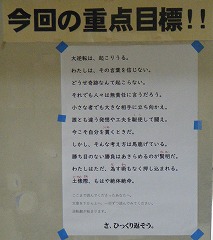 今回の重点目標!!
大逆転は、起こりうる。
わたしは、その言葉を信じない。
どうせ奇跡なんて起こらない。
それでも人々は無責任に言うだろう。
小さな者でも大きな相手に立ち向かえ。
誰とも違う発想や工夫を駆使して闘え。
今こそ自分を貫くときだ。
しかし、そんな考え方は馬鹿げている。
勝ち目のない勝負はあきらめるのが賢明だ。
わたしはただ、為す術もなく押し込まれる。
土俵際、もはや絶体絶命。
さ、ひっくり返そう。